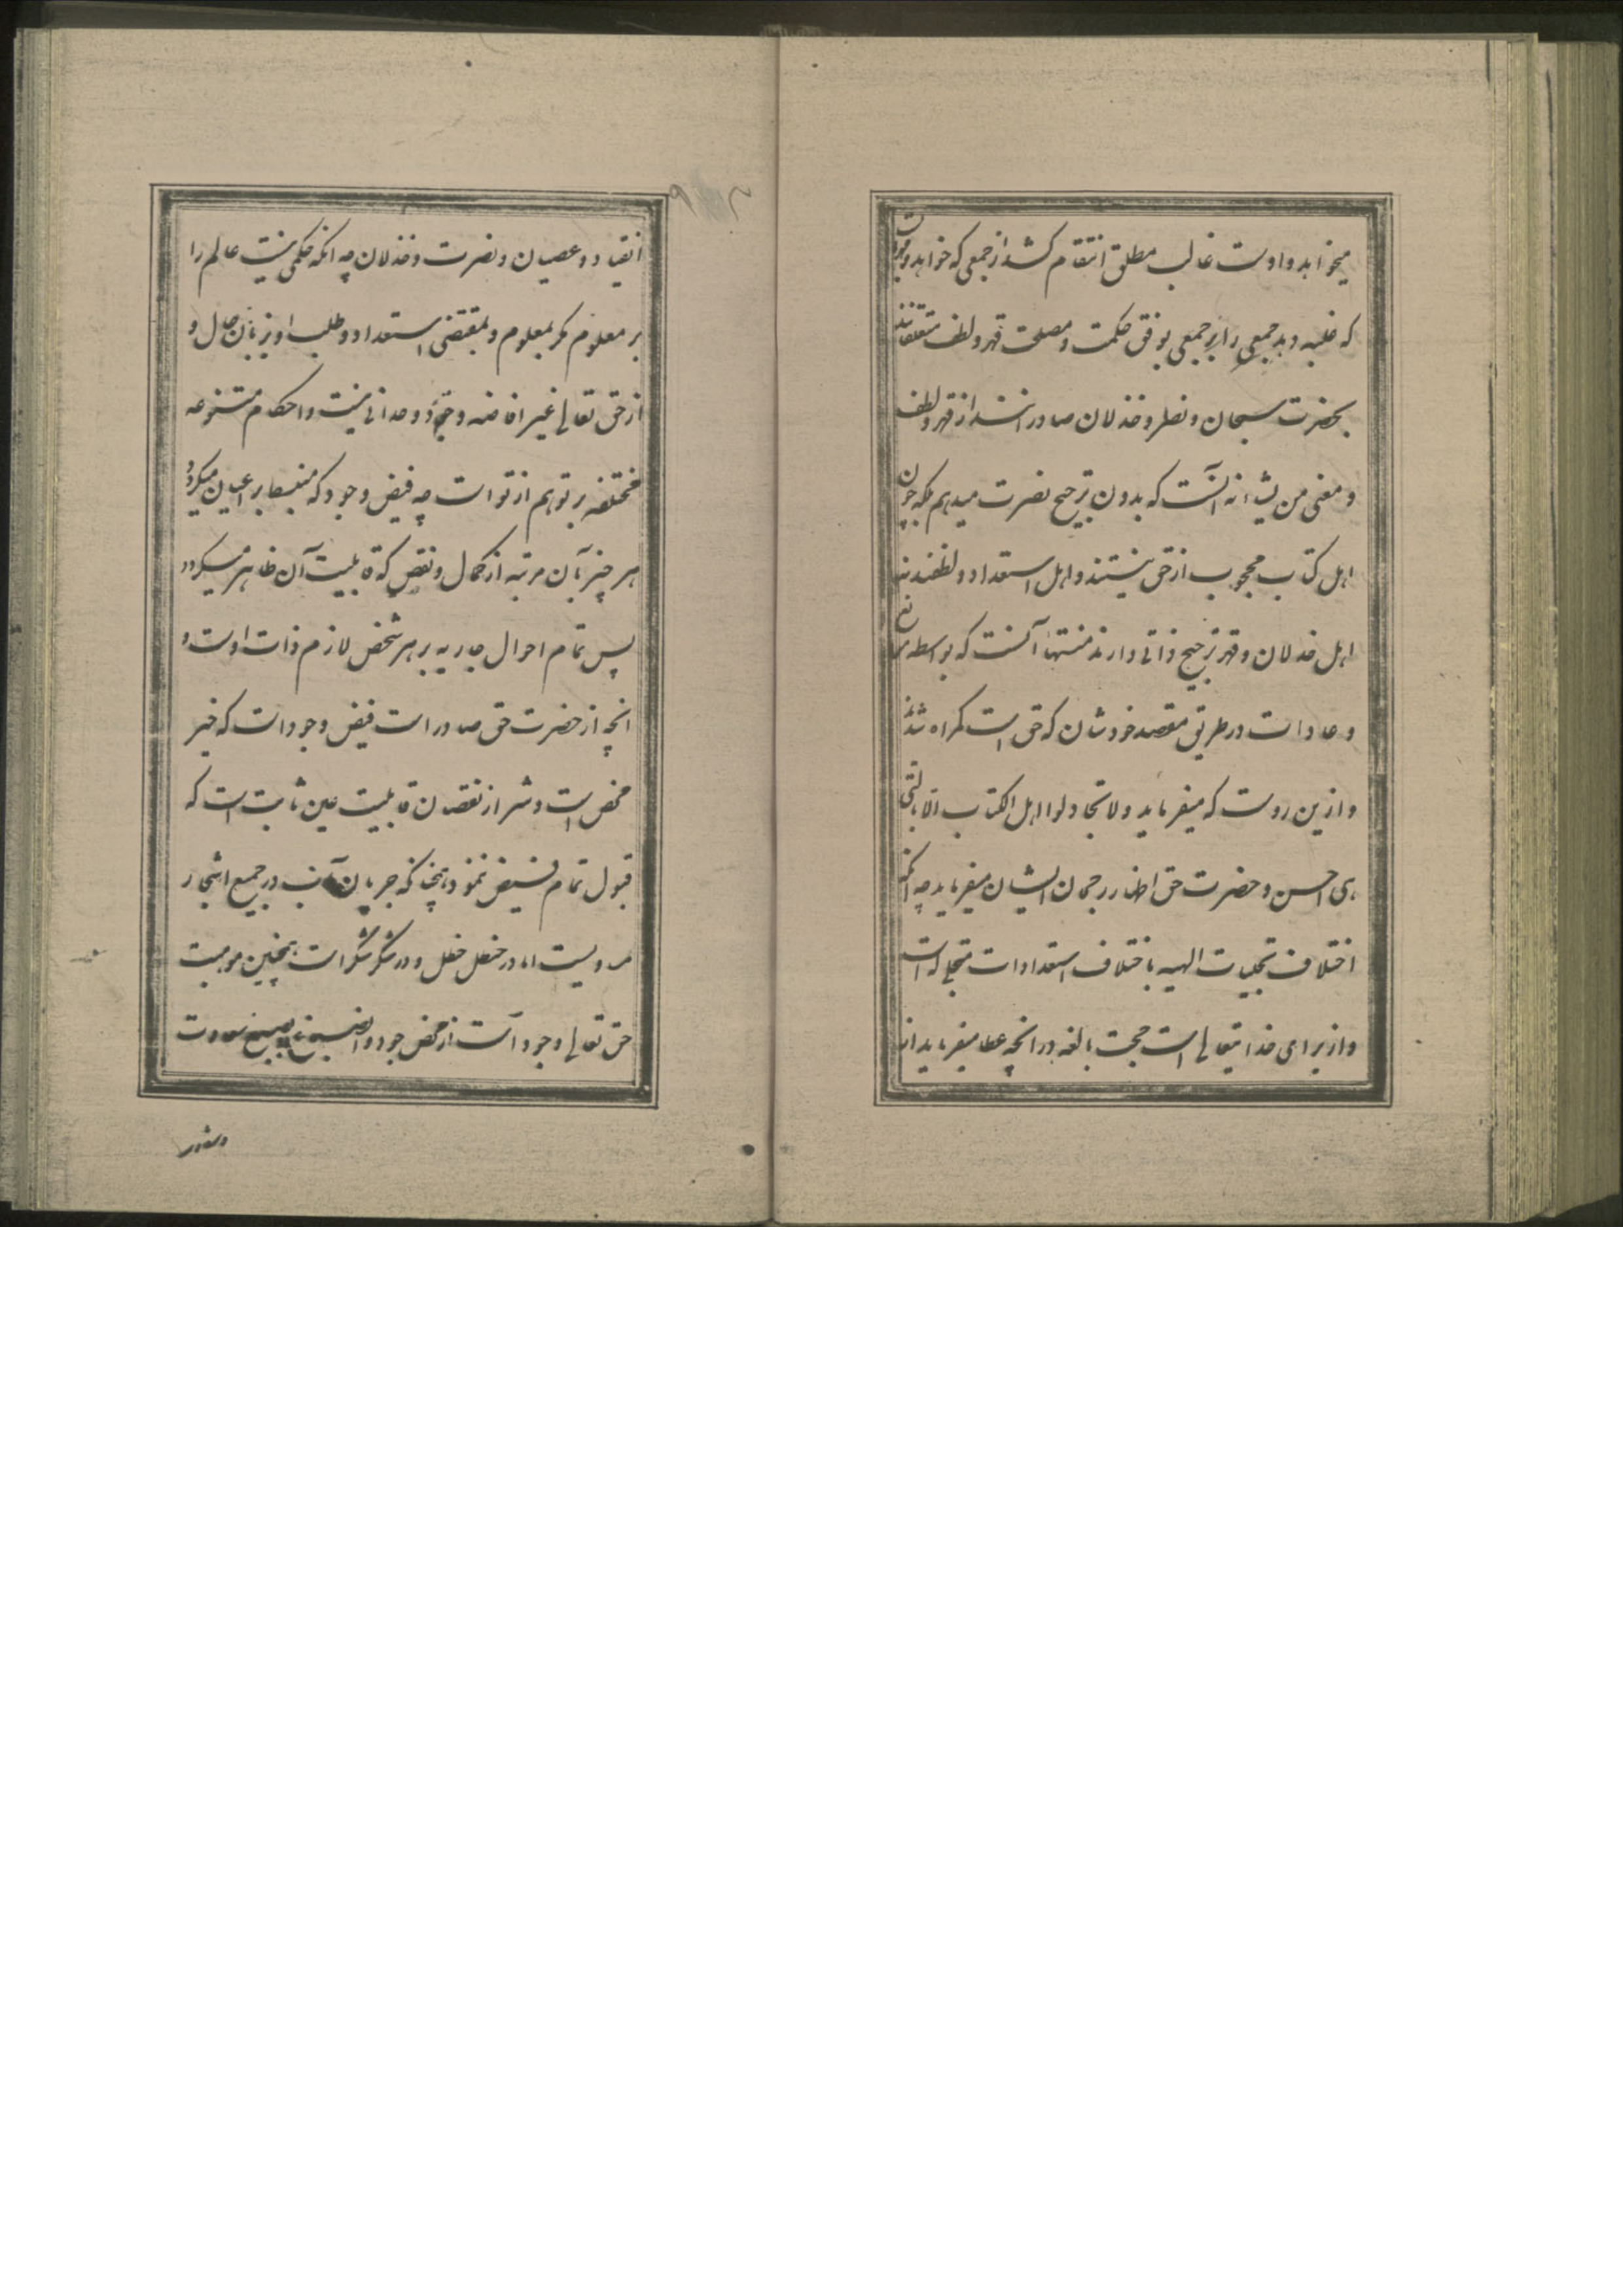 میخواهد و اوست غالب مطلق انتقام کشد از جمعی که خواهد و
که غلبه دهد جمعی را بر جمعی بوفق حکمت و مصلحت قهر و لطف متعلقانند
بحضرت سبحان و نصر و خذلان صادر انند از قهر و لطف
و معنی من یشاء نه آنست که بدون ترجیح نصرت میدهم بلکه چون
اهل کتاب محجوب از حق نیستند و اهل استعداد و لطفند نه
اهل خذلان و قهر ترجیح ذاتی دارند منتها آنست که بواسطه
و عادات در طریق مقصد خودشان که حق است گمراه شدند
و ازین روست که میفرماید ولا تجادلوا اهل الکتاب الا بالتی
هی احسن و حضرت حق اظهار رجحان ایشان میفرماید چه آنکه
اختلاف تجلیات الهیه باختلاف استعدادات متجلی له است
و از برای خدایتعالی است حجت بالغه در آنچه عطا میفرماید از
انقیاد و عصیان و نصرت و خذلان چه آنکه حکمی نیست عالم را
بر معلوم مگر بمعلوم و بمقتضی استعداد و طلب او بزبان حال و
از حق تعالی غیر افاضه وجود وحدانی نیست و احکام متنوعه
مختلفه بر تو هم از تو است چه فیض وجود که منبسط بر اعیان میگردد
هر چیز بآن مرتبه از کمال و نقص که قابلیت آن ظاهر میگردد
پس تمام احوال جاریه بر هر شخص لازم ذات اوست و
آنچه از حضرت حق صادر است فیض وجود است که خیر
محض است و شر از نقصان قابلیت عین ثابت است که
قبول تمام فیض ننمود همچنانکه جریان آب در جمیع اشجار
مساویست اما در حنظل حنظل و در شکر شکر است همچنین موهبت
حق تعالی وجود است از محض جود و